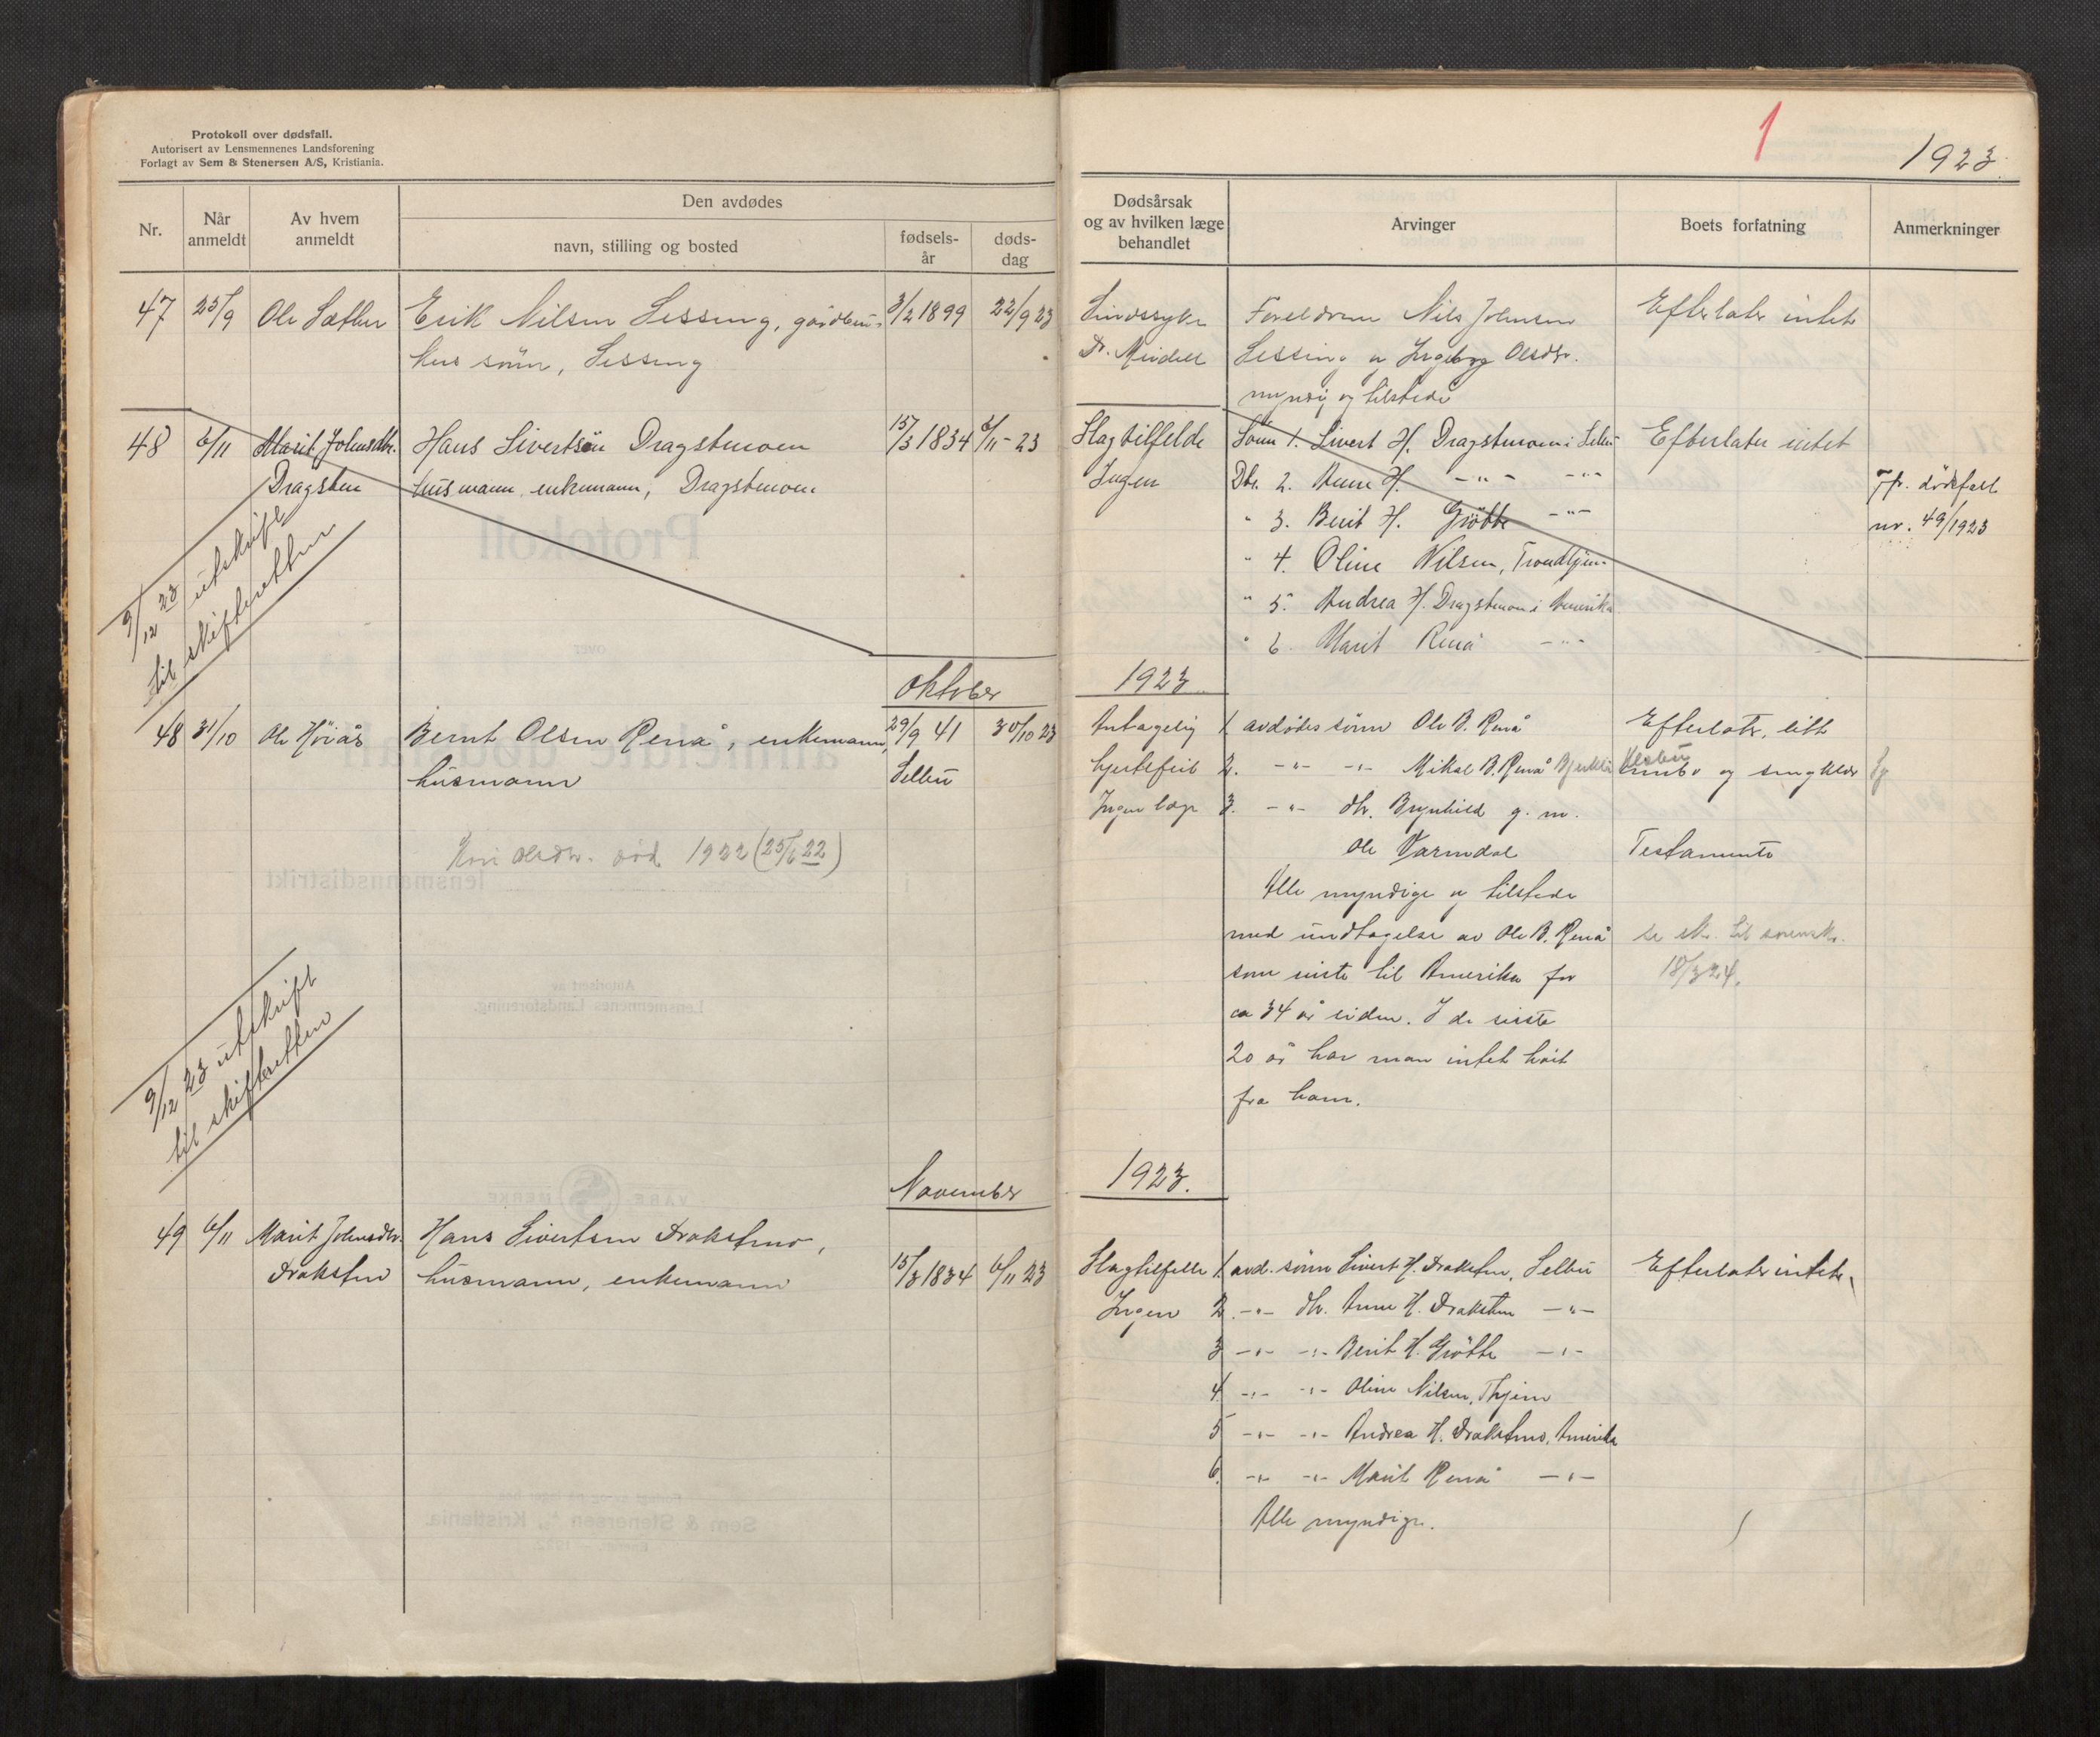 Protokoll over dødsfall.
Autorisert av Lensmennenes Landsforening
Forlagt av Sem & Stenersen A/S, Kristiania.
1
1923.
Nr.
Når anmeldt
Av hvem anmeldt
Den avdødes
navn, stilling og bosted
fødsels-år
døds-dag
Dødsårsak og av hvilken læge behandlet
Arvinger
Boets forfatning
Anmerkninger
47 25/9 Ole Sæther Erik Nilsen Sessing, gårdbru- 3/2 1899 22/9 23
kers sønn, Sessing
Sindssyke
Dr. Mindell
Foreldrene Nils Johnsen
Sessing og Ingeborg Olsdtr.
myndig og tilstede
Efterlater intet
48 6/11 Marit Johnsdtr. Hans Sivertsen Dragstmoen 15/3 1834 6/11-23
Dragsten husmann, enkemann, Dragstmoen
Slagtilfelde
Ingen
Sønn 1. Sivert H. Dragstmoen i Selbu
Dtr. 2. Anne H. -"- -"-
" 3. Berit H. Grötte -"-
" 4. Oline Nilsen, Trondhjem
" 5. Andrea H. Dragstmoen i Amerika
" 6. Marit Renå -"-
Efterlater intet
Jfr. dødsfall
nr. 49/1923
9/12 23 utskrift
til skifteretten
Oktober 1923
48 31/10 Ole Höiås Bernt Olsen Renå, enkemann, 29/9 41 30/10 23
husmann Selbu
Kari Olsdtr. död 1922 (25/6 22)
Antagelig
hjertefeil
Ingen læge
1. avdödes sönn Ole B. Renå
2. -"- -"- Mikal B. Renå
3. -"- dtr. Brynhild g. m.
Ole Varmdal
Alle myndige og tilstede
med undtagelse av Ole B. Renå
som reiste til Amerika for
ca 34 år siden. I de siste
20 år har man intet hört
fra ham.
Efterlater litt
og
Testamente
18/3 24.
9/12 23 utskrift
til skifteretten
November 1923.
49 6/11 Marit Johnsdtr. Hans Sivertsen Drakstmo,
Draksten husmann, enkemann 15/3 1834 6/11 23
Slagtilfelle
Ingen
1. avd. sönn Sivert H. Draksten, Selbu
2. -"- dtr. Anne H. Draksten -"-
3 -"- -"- Berit H. Grötte -"-
4 -"- -"- Oline Nilsen, Thjem
5 -"- -"- Andrea H. Drakstmo, Amerika
6. -"- -"- Marit Renå -"-
Alle myndige.
Efterlater intet